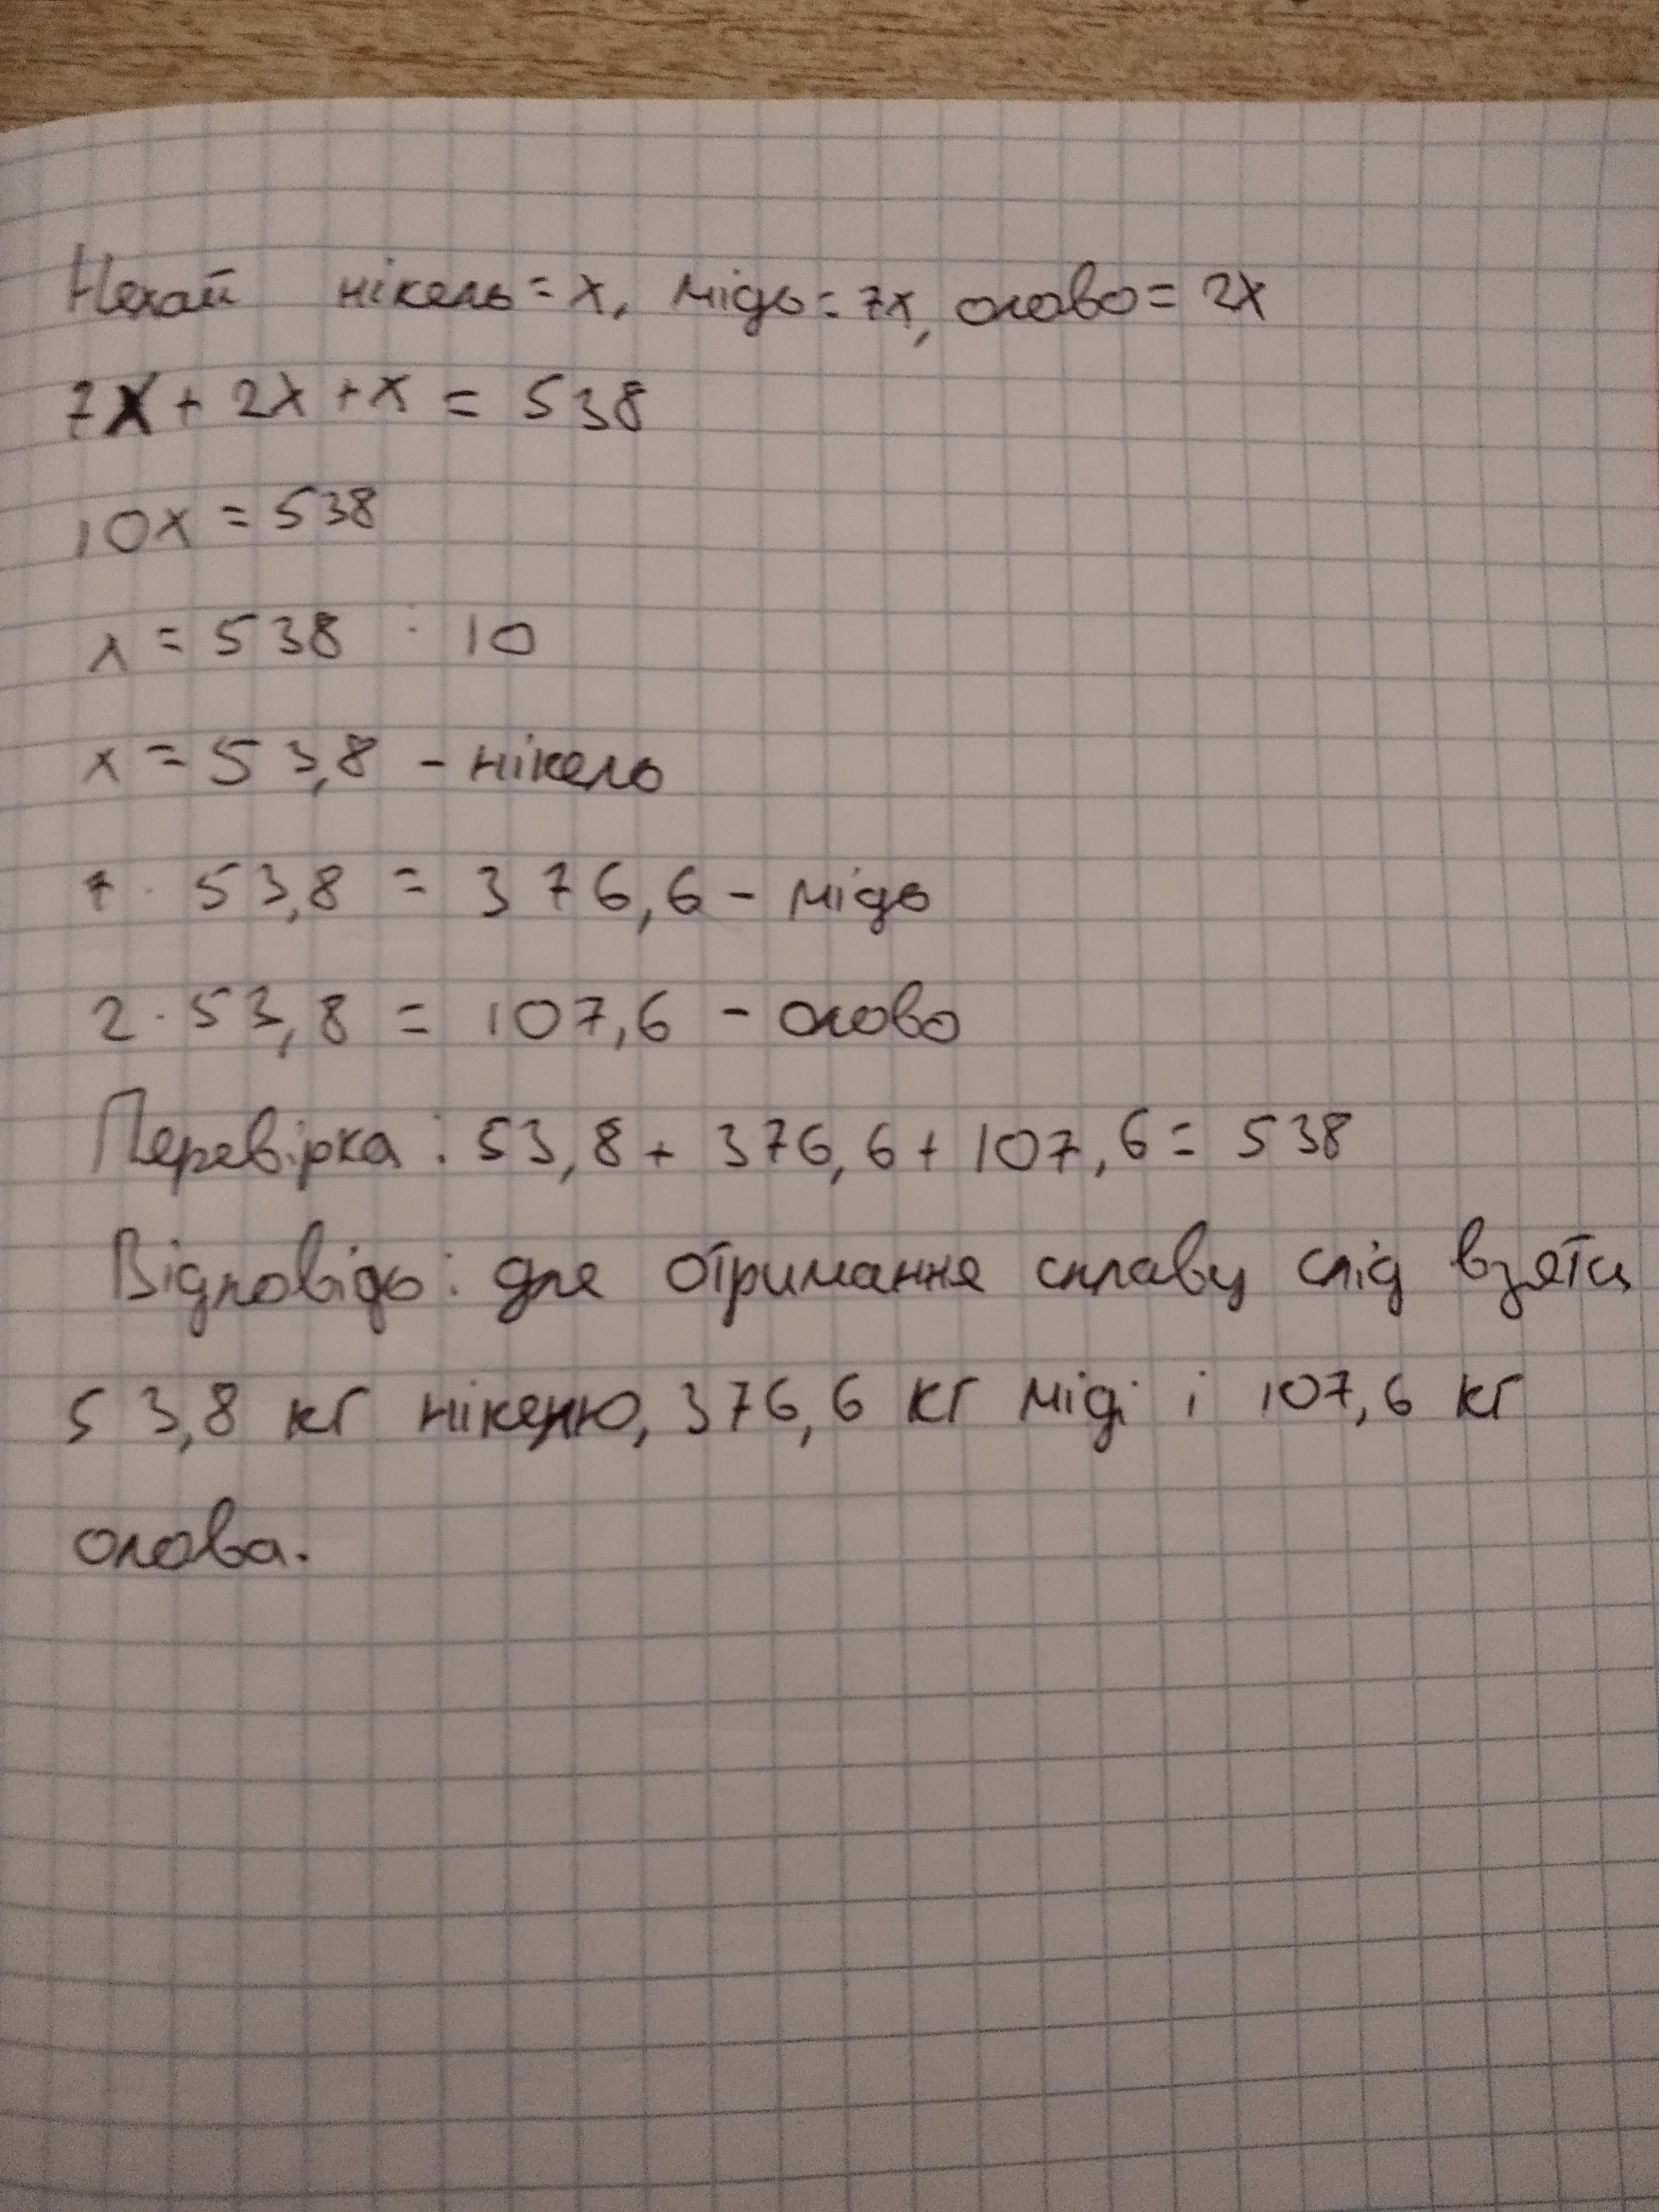 Нехай нікель = x, мідь = 7x, олово = 2x
7x + 2x + x = 538
10x = 538
x = 538 : 10
x = 53,8 - нікель
7 · 53,8 = 376,6 - мідь
2 · 53,8 = 107,6 - олово
Перевірка: 53,8 + 376,6 + 107,6 = 538
Відповідь: для отримання сплаву слід взяти
53,8 кг нікелю, 376,6 кг міді і 107,6 кг
олова.